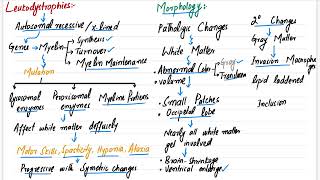 Leukodystrophies:
Autosomal recessive / x lined
Genes → Myelin
Synthesis
Turnover
Myelin Maintenance
Mutation
Lysosomal enzymes
Peroxisomal enzymes
Myeline Proteins
Affect white matter diffusely
Motor Skills, Spasticity, Hypotonia, Ataxia
Progressive with Symetric changes
Morphology:
Pathologic Changes
White Matter
Abnormal Color
• volume
Gray
Translucent
• Small Patches
• Occipetal lobe
Nearly all white matter get involved
• Brain - Shrinkage
• Ventrical enlarge
2° Changes
Gray Matter
Invasion Macrophages
lipid laddened
Inclusion